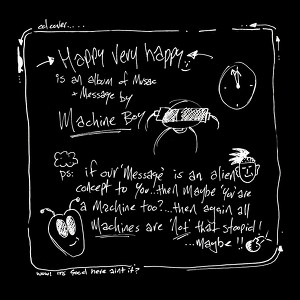 cd cover....
Happy very happy
is an album of Music
+ Message by
Machine Boy
ps: if our 'Message' is an alien
concept to You!..then maybe 'You' are
a Machine too?...then again all
Machines are 'Not' that stoopid!
...Maybe!!
wow! ms good here aint it?